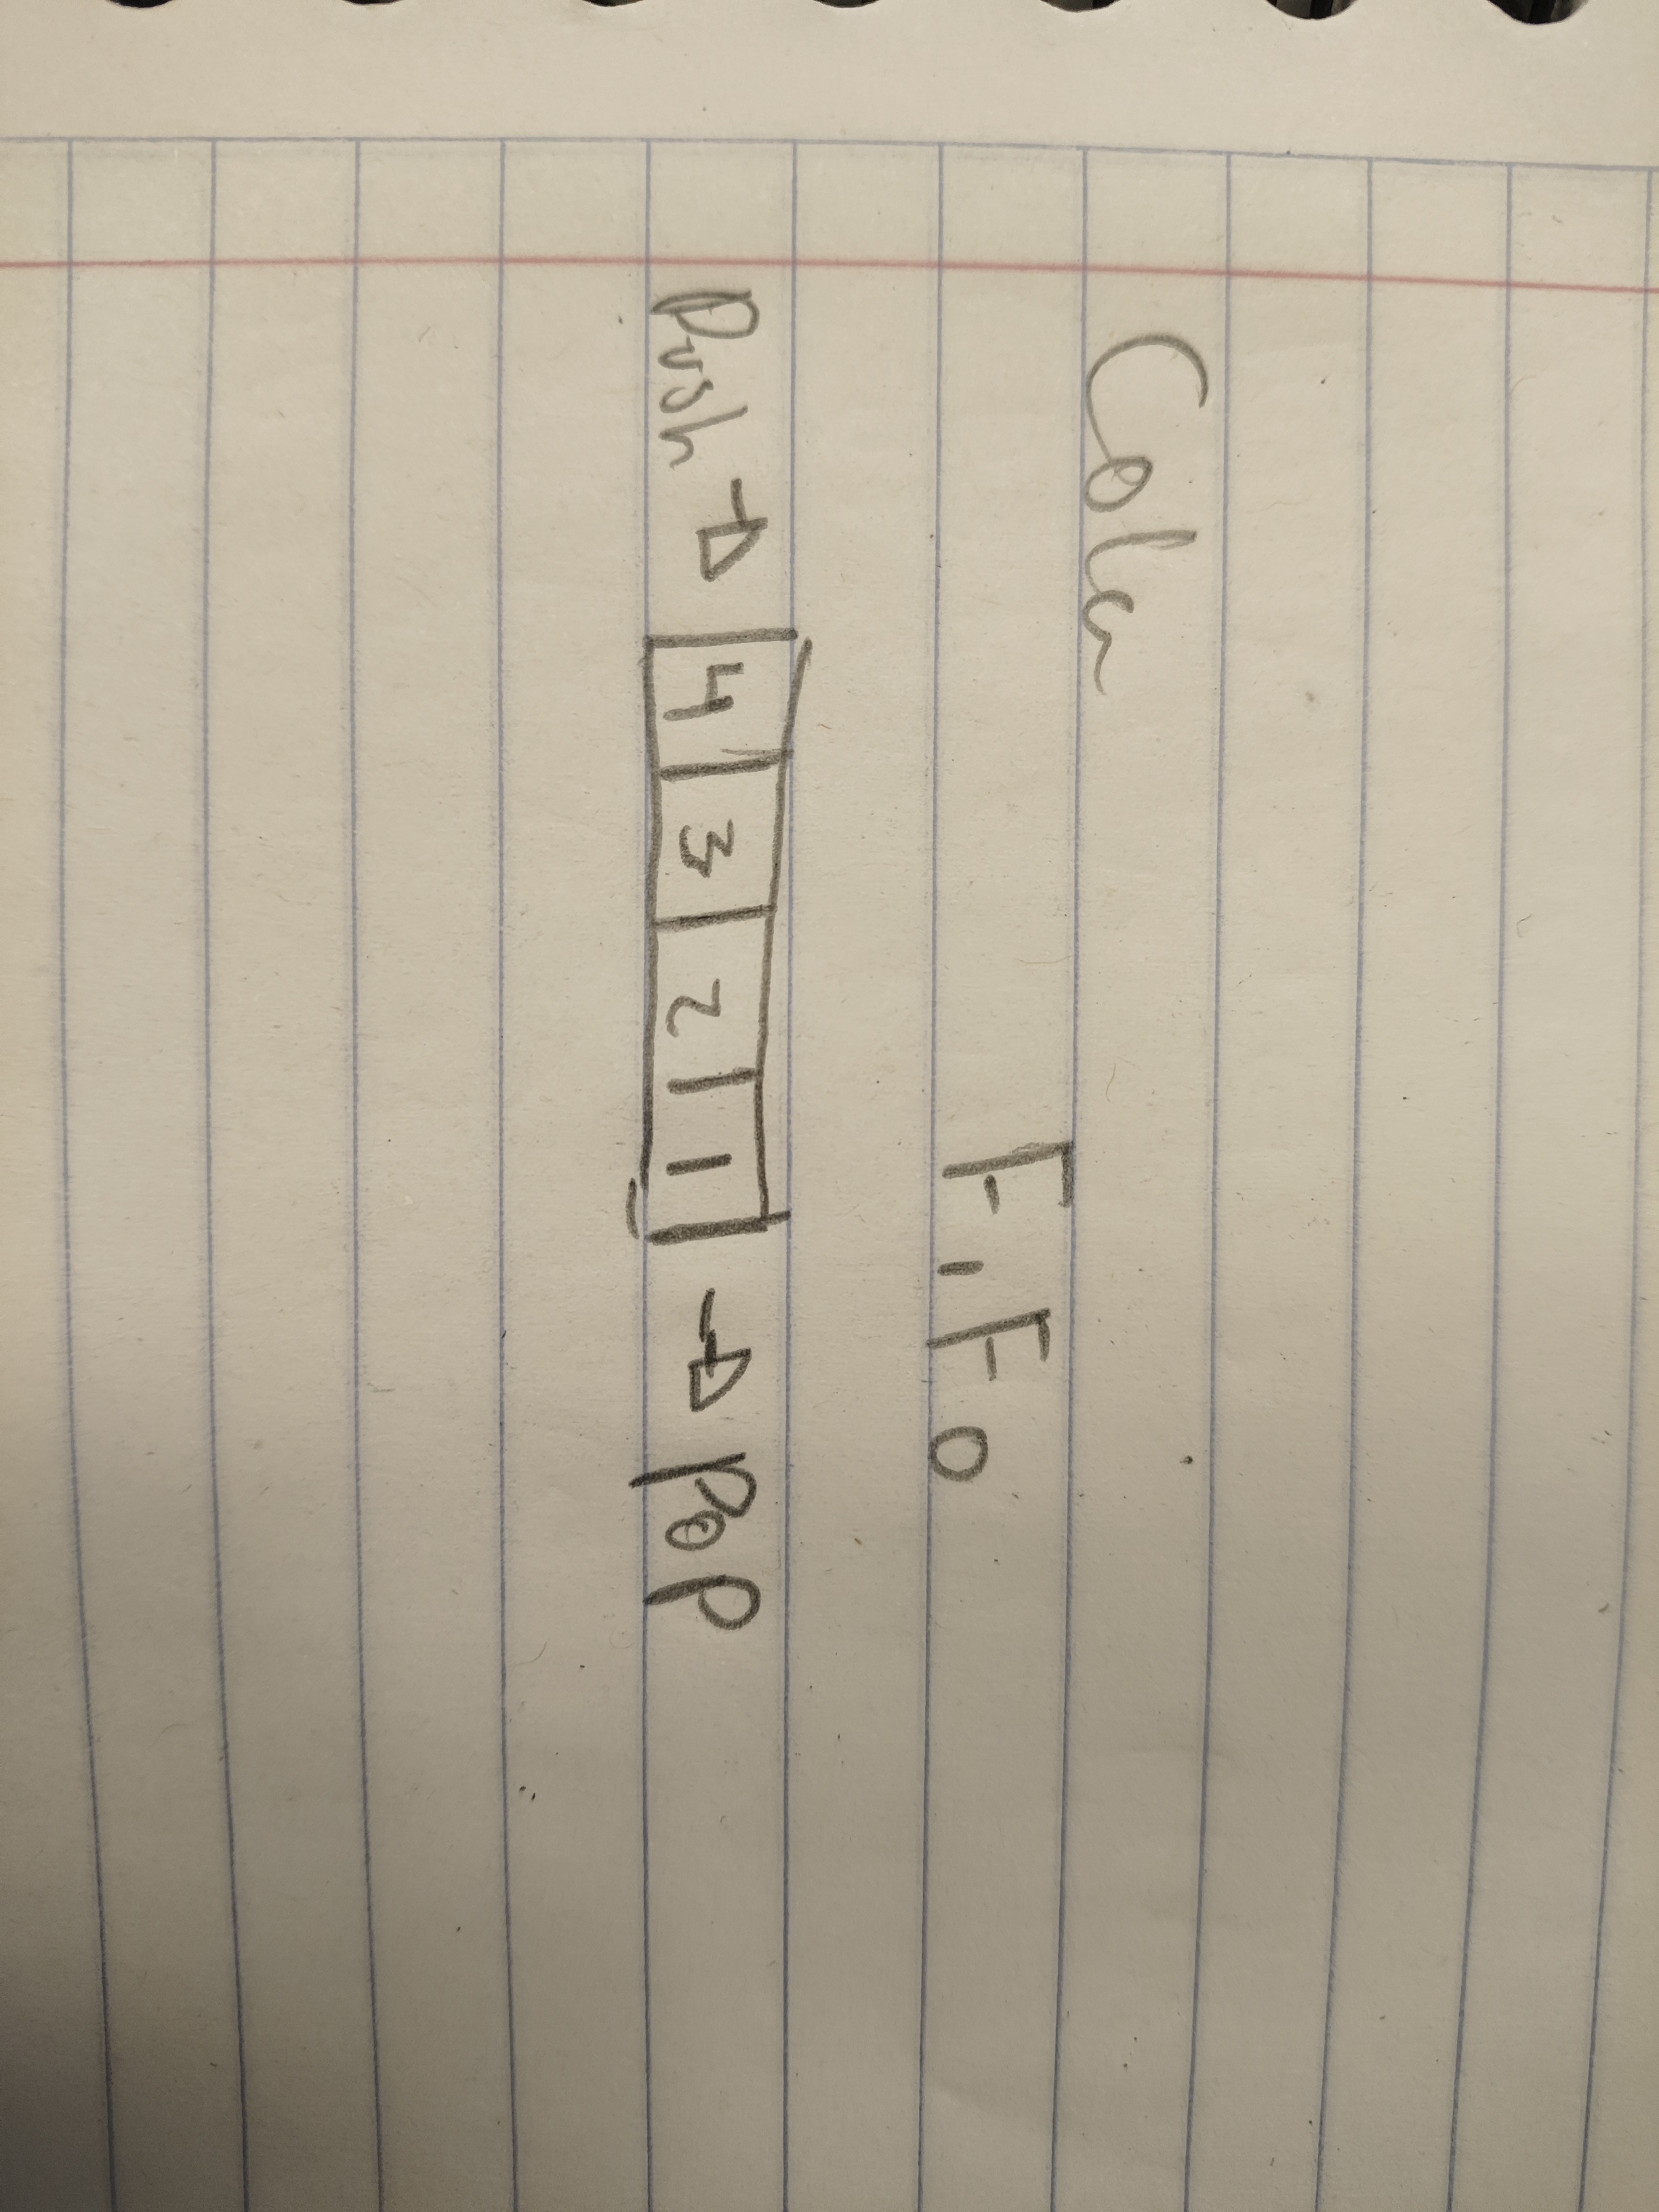 Cola
FiFO
Push → 4 3 2 1 → Pop